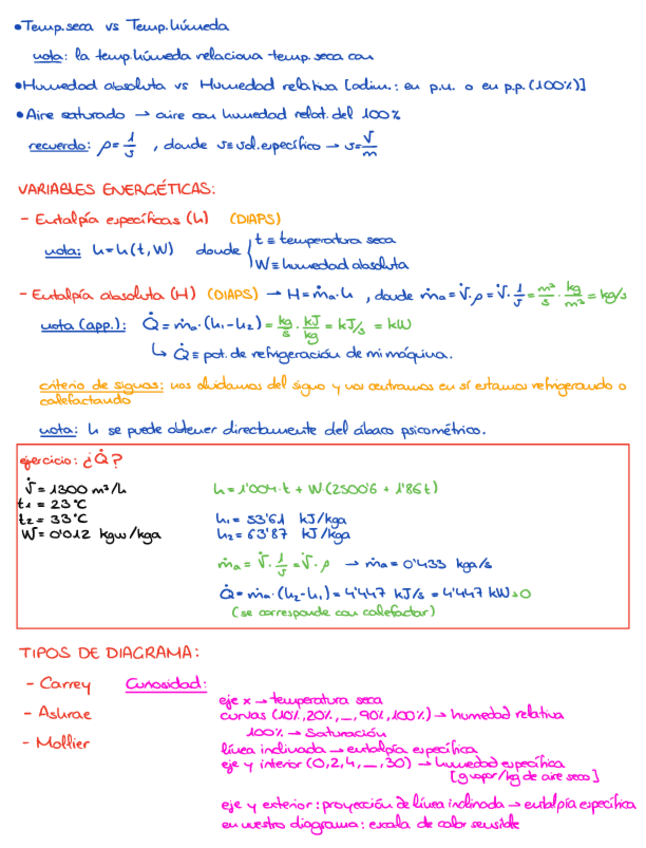 • Temp. seca vs Temp. húmeda
nota: la temp. húmeda relaciona temp. seca con
• Humedad absoluta vs Humedad relativa [adim.: en p.u. o en p.p. (100%)]
• Aire saturado → aire con humedad relat. del 100%
recuerdo: ρ = 1/v , donde v ≡ vol. específico → v = V/m
VARIABLES ENERGÉTICAS:
- Entalpía específicas (h) (DIAPS)
nota: h = h(t, W) donde { t ≡ temperatura seca
W ≡ humedad absoluta
- Entalpía absoluta (H) (DIAPS) → H = ṁa · h , donde ṁa = V̇ · ρ = V̇ · 1/v = m³/s · kg/m³ = kg/s
nota (app.): Q̇ = ṁa · (h1 - h2) = kg/s · kJ/kg = kJ/s = kW
↳ Q̇ ≡ pot. de refrigeración de mi máquina.
criterio de signos: nos olvidamos del signo y nos centramos en si estamos refrigerando o
calefactando
nota: h se puede obtener directamente del ábaco psicométrico.
ejercicio: ¿Q̇?
V̇ = 1300 m³/h
t1 = 23°C
t2 = 33°C
W = 0'012 kgw/kga
h = 1'004 · t + W · (2500'6 + 1'86t)
h1 = 53'61 kJ/kga
h2 = 63'87 kJ/kga
ṁa = V̇ · 1/v = V̇ · ρ → ṁa = 0'433 kga/s
Q̇ = ṁa · (h2 - h1) = 4'447 kJ/s = 4'447 kW > 0
(se corresponde con calefactar)
TIPOS DE DIAGRAMA:
- Carrey
- Ashrae
- Mollier
Curiosidad:
eje x → temperatura seca
curvas (10%, 20%, ..., 90%, 100%) → humedad relativa
100% → Saturación
línea inclinada → entalpía específica
eje y interior (0, 2, 4, ..., 30) → humedad específica
[g vapor/kg de aire seco]
eje y exterior: proyección de línea inclinada → entalpía específica
en nuestro diagrama: escala de calor sensible